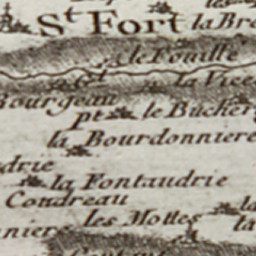 les
St Fort
la Br
le Fouille
la Vice
Bourgeau
le Bucher
pt
la Bourdonniere
drie
la Fontaudrie
Coudreau
la
les Mottes
la
niere